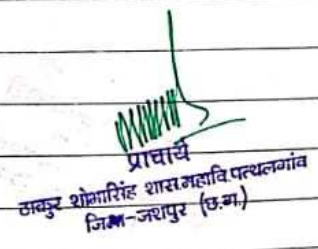 प्राचार्य
ठाकुर शोभासिंह शास.महावि.पत्थलगांव
जिला-जशपुर (छ.ग.)